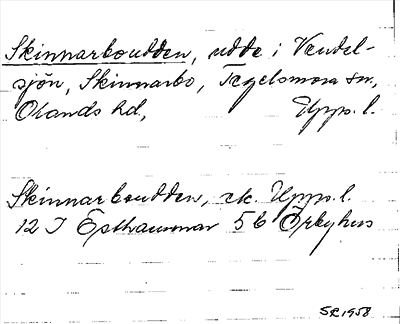 Skinnarboudden, udde i Vendel-
sjön, Skinnarbo, Tegelsmora sn,
Olands hd, Upps. l.
Skinnarboudden, ek. Upps. l.
12 I Östhammar 5 b Örbyhus
SR 1958